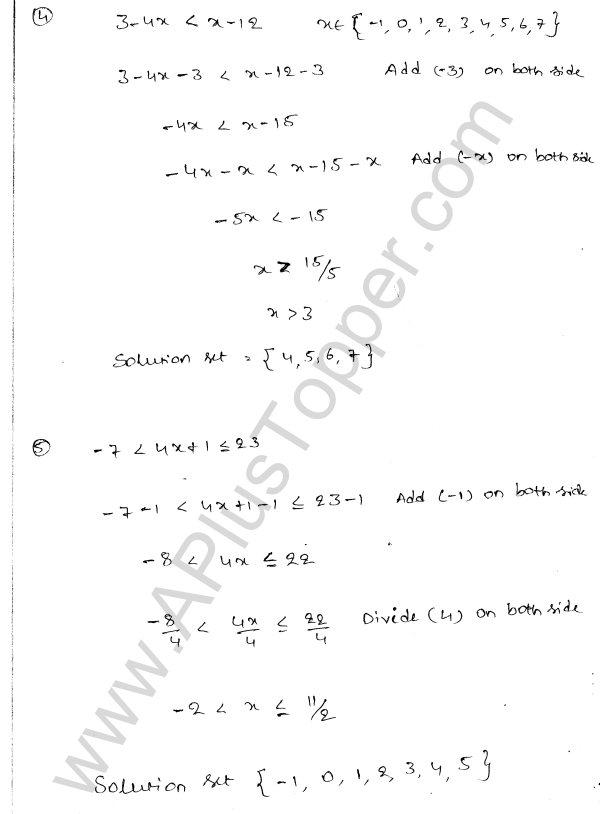 ④ 3-4x < x-12 x∈ {-1, 0, 1, 2, 3, 4, 5, 6, 7}
3-4x-3 < x-12-3 Add (-3) on both side
-4x < x-15
-4x-x < x-15-x Add (-x) on both side
-5x < -15
x > 15/5
x > 3
Solution set = {4, 5, 6, 7}
⑤ -7 < 4x+1 ≤ 23
-7-1 < 4x+1-1 ≤ 23-1 Add (-1) on both side
-8 < 4x ≤ 22
-8/4 < 4x/4 ≤ 22/4 Divide (4) on both side
-2 < x ≤ 11/2
Solution set {-1, 0, 1, 2, 3, 4, 5}
www.APlusTopper.com